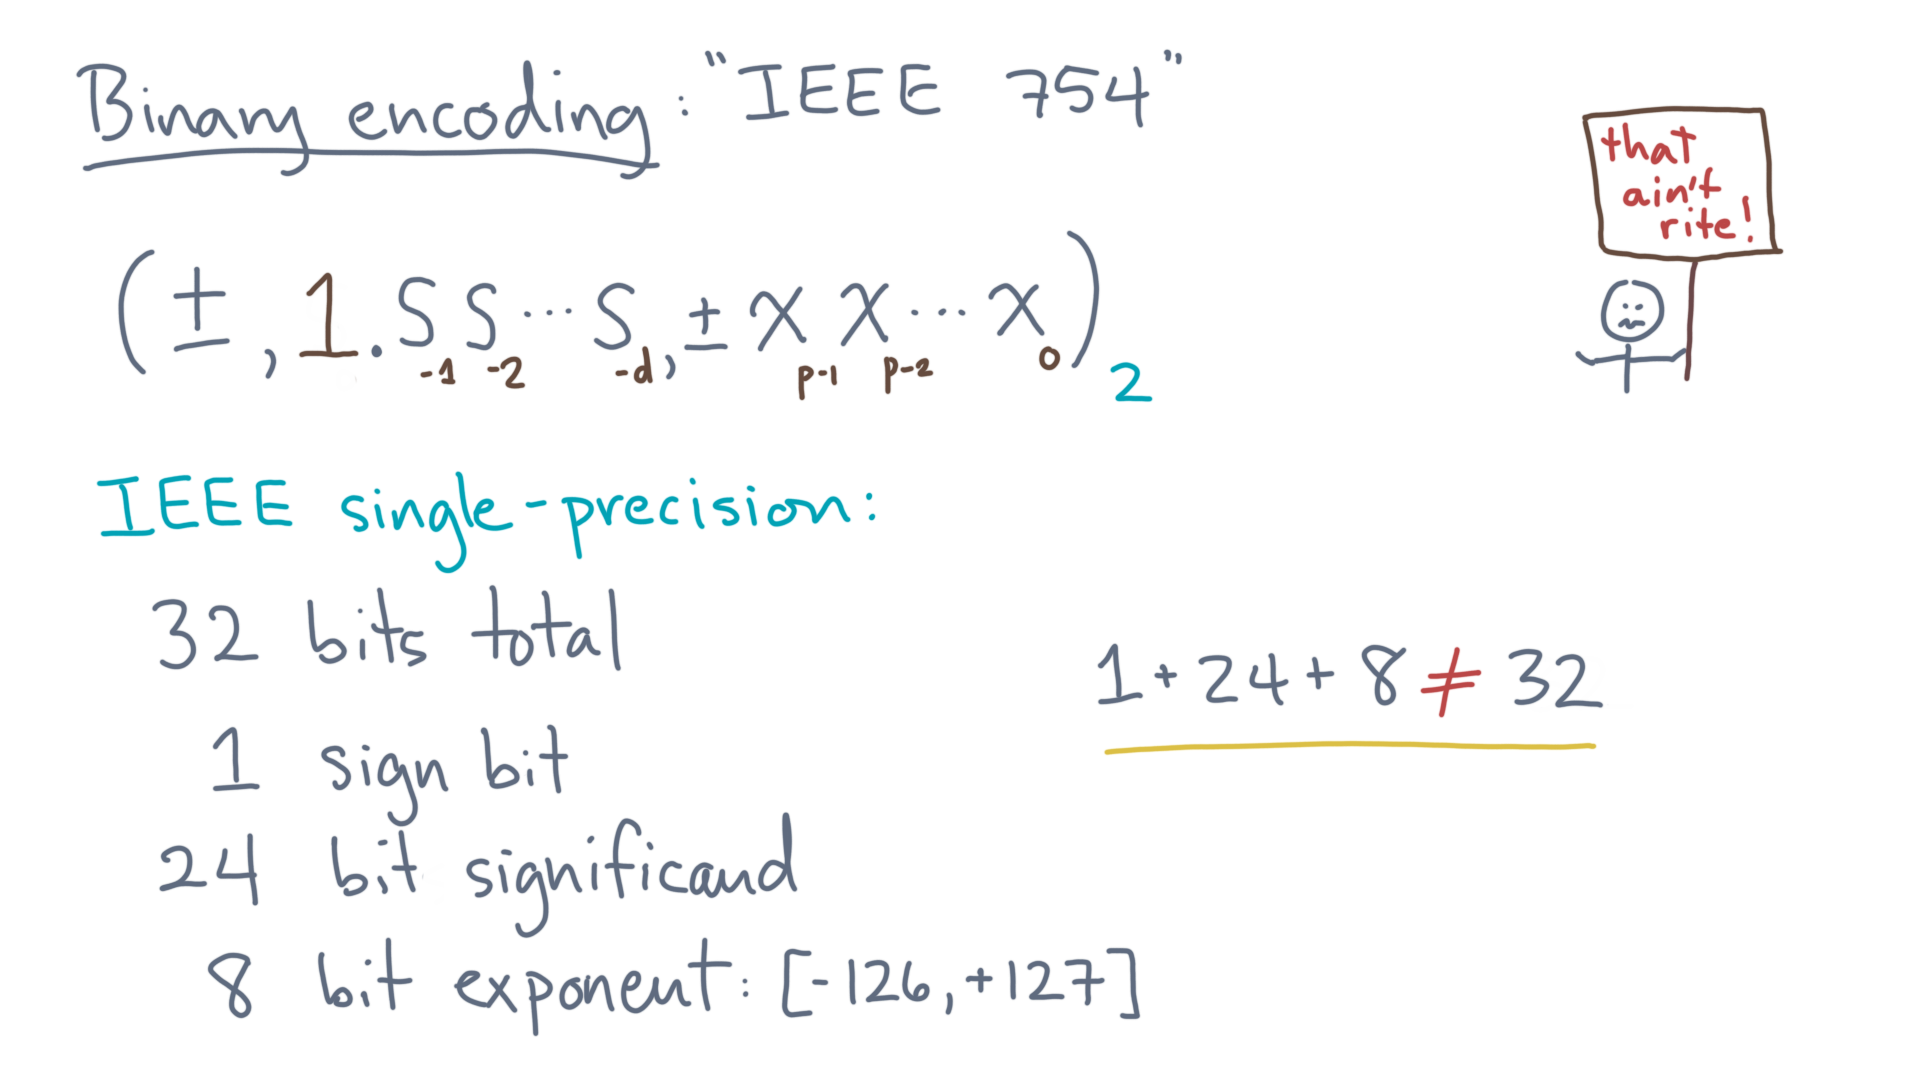 Binary encoding: "IEEE 754"
that
ain't
rite!
(±, 1.S₋₁S₋₂···S₋d, ±Xₚ₋₁Xₚ₋₂···X₀)₂
IEEE single-precision:
32 bits total
1 sign bit
24 bit significand
8 bit exponent: [-126, +127]
1 + 24 + 8 ≠ 32